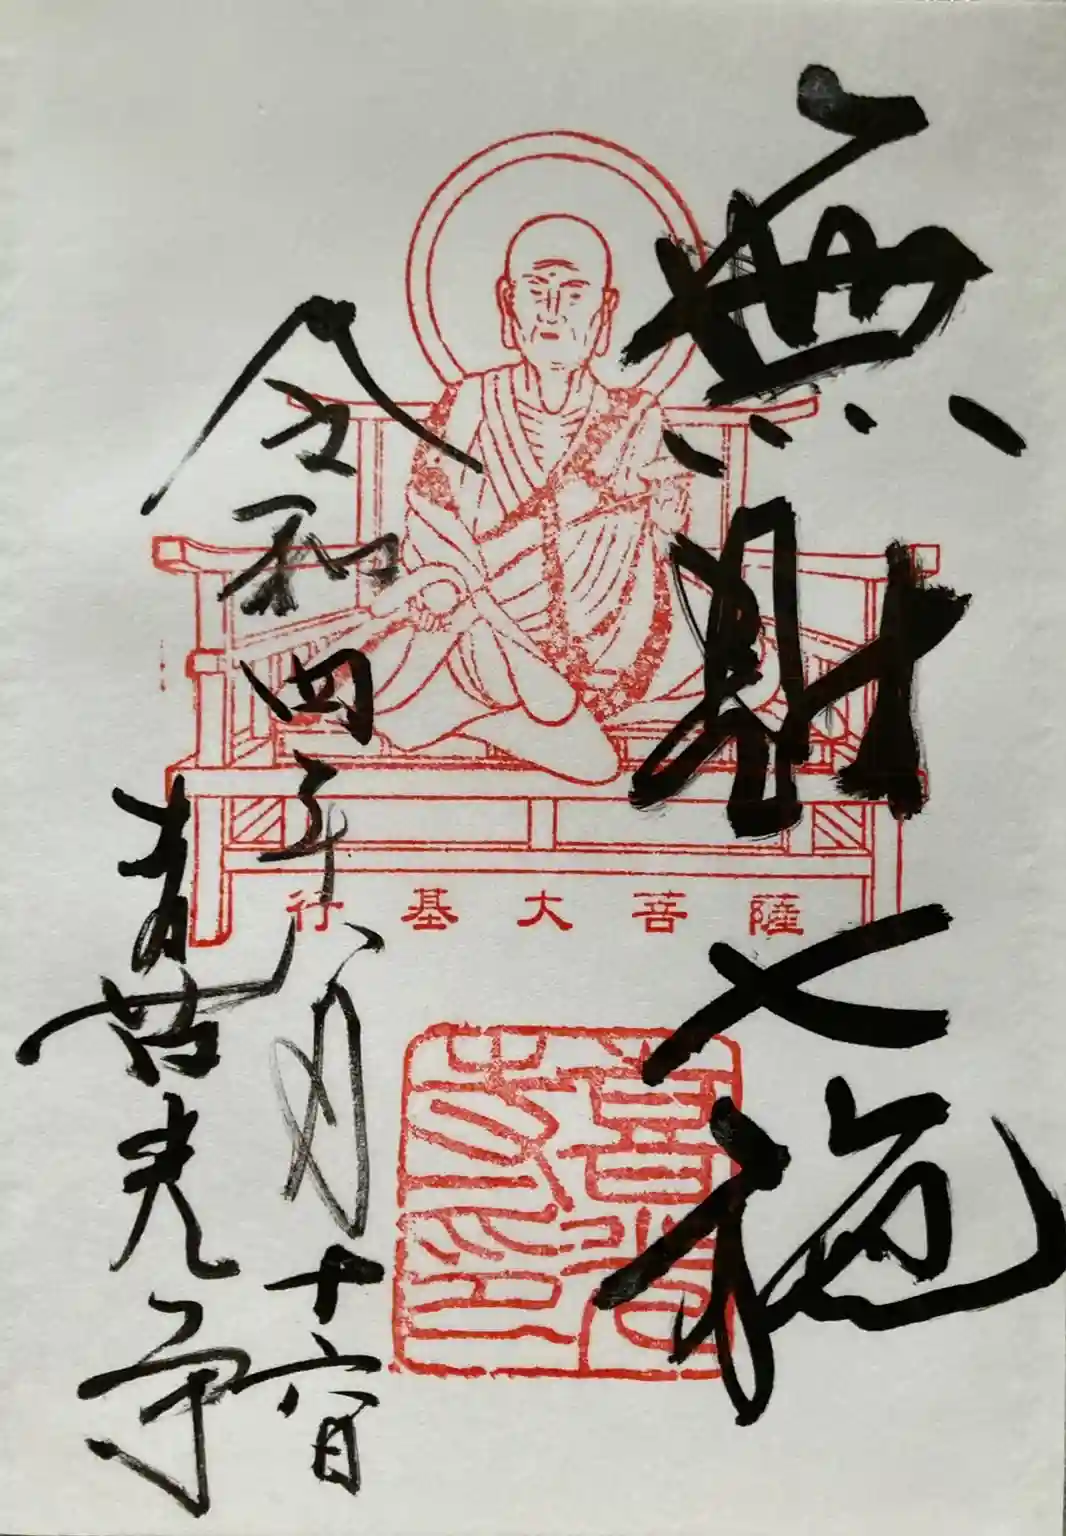 無財七施
行基大菩薩
喜光寺印
令和四年八月十六日
喜光寺